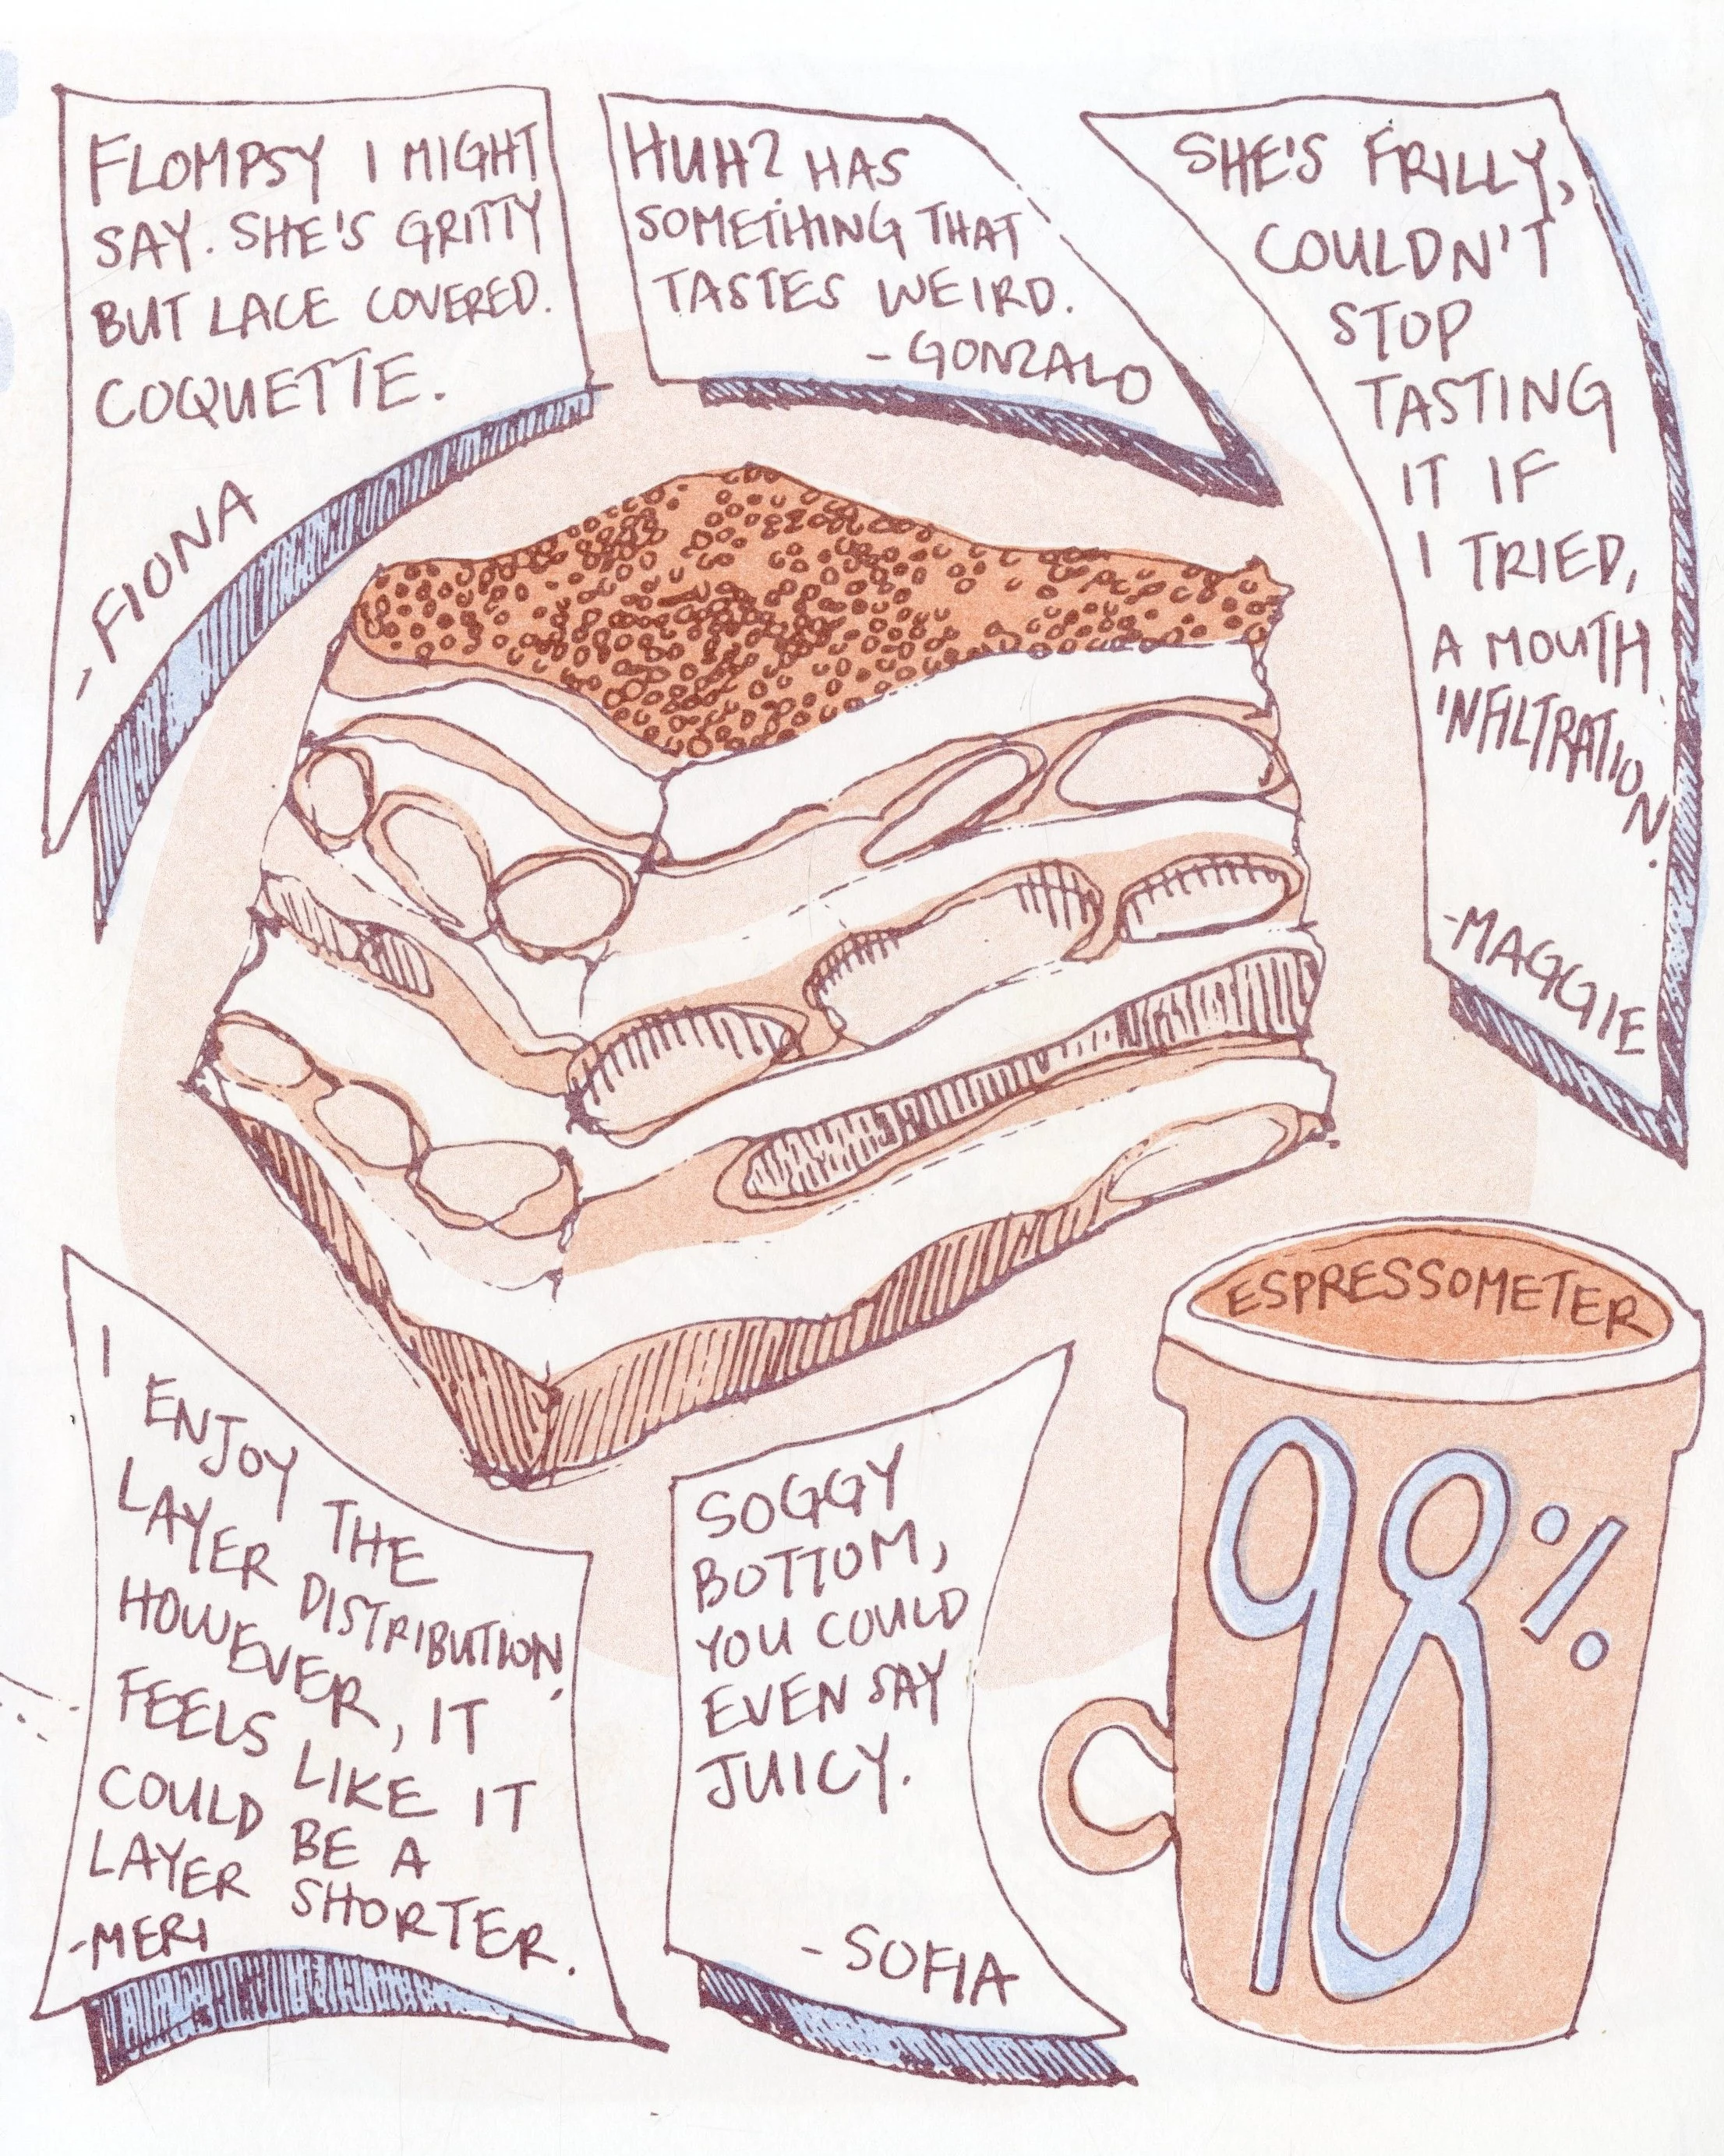 FLOMPSY I MIGHT
SAY. SHE'S GRITTY
BUT LACE COVERED.
COQUETTE.
-FIONA
HUH? HAS
SOMETHING THAT
TASTES WEIRD.
-GONZALO
SHE'S FRILLY,
COULDN'T
STOP
TASTING
IT IF
I TRIED,
A MOUTH
INFILTRATION.
-MAGGIE
I
ENJOY THE
LAYER DISTRIBUTION.
HOWEVER, IT
FEELS LIKE IT
COULD BE A
LAYER SHORTER.
-MERI
SOGGY
BOTTOM,
YOU COULD
EVEN SAY
JUICY.
-SOFIA
ESPRESSOMETER
98%